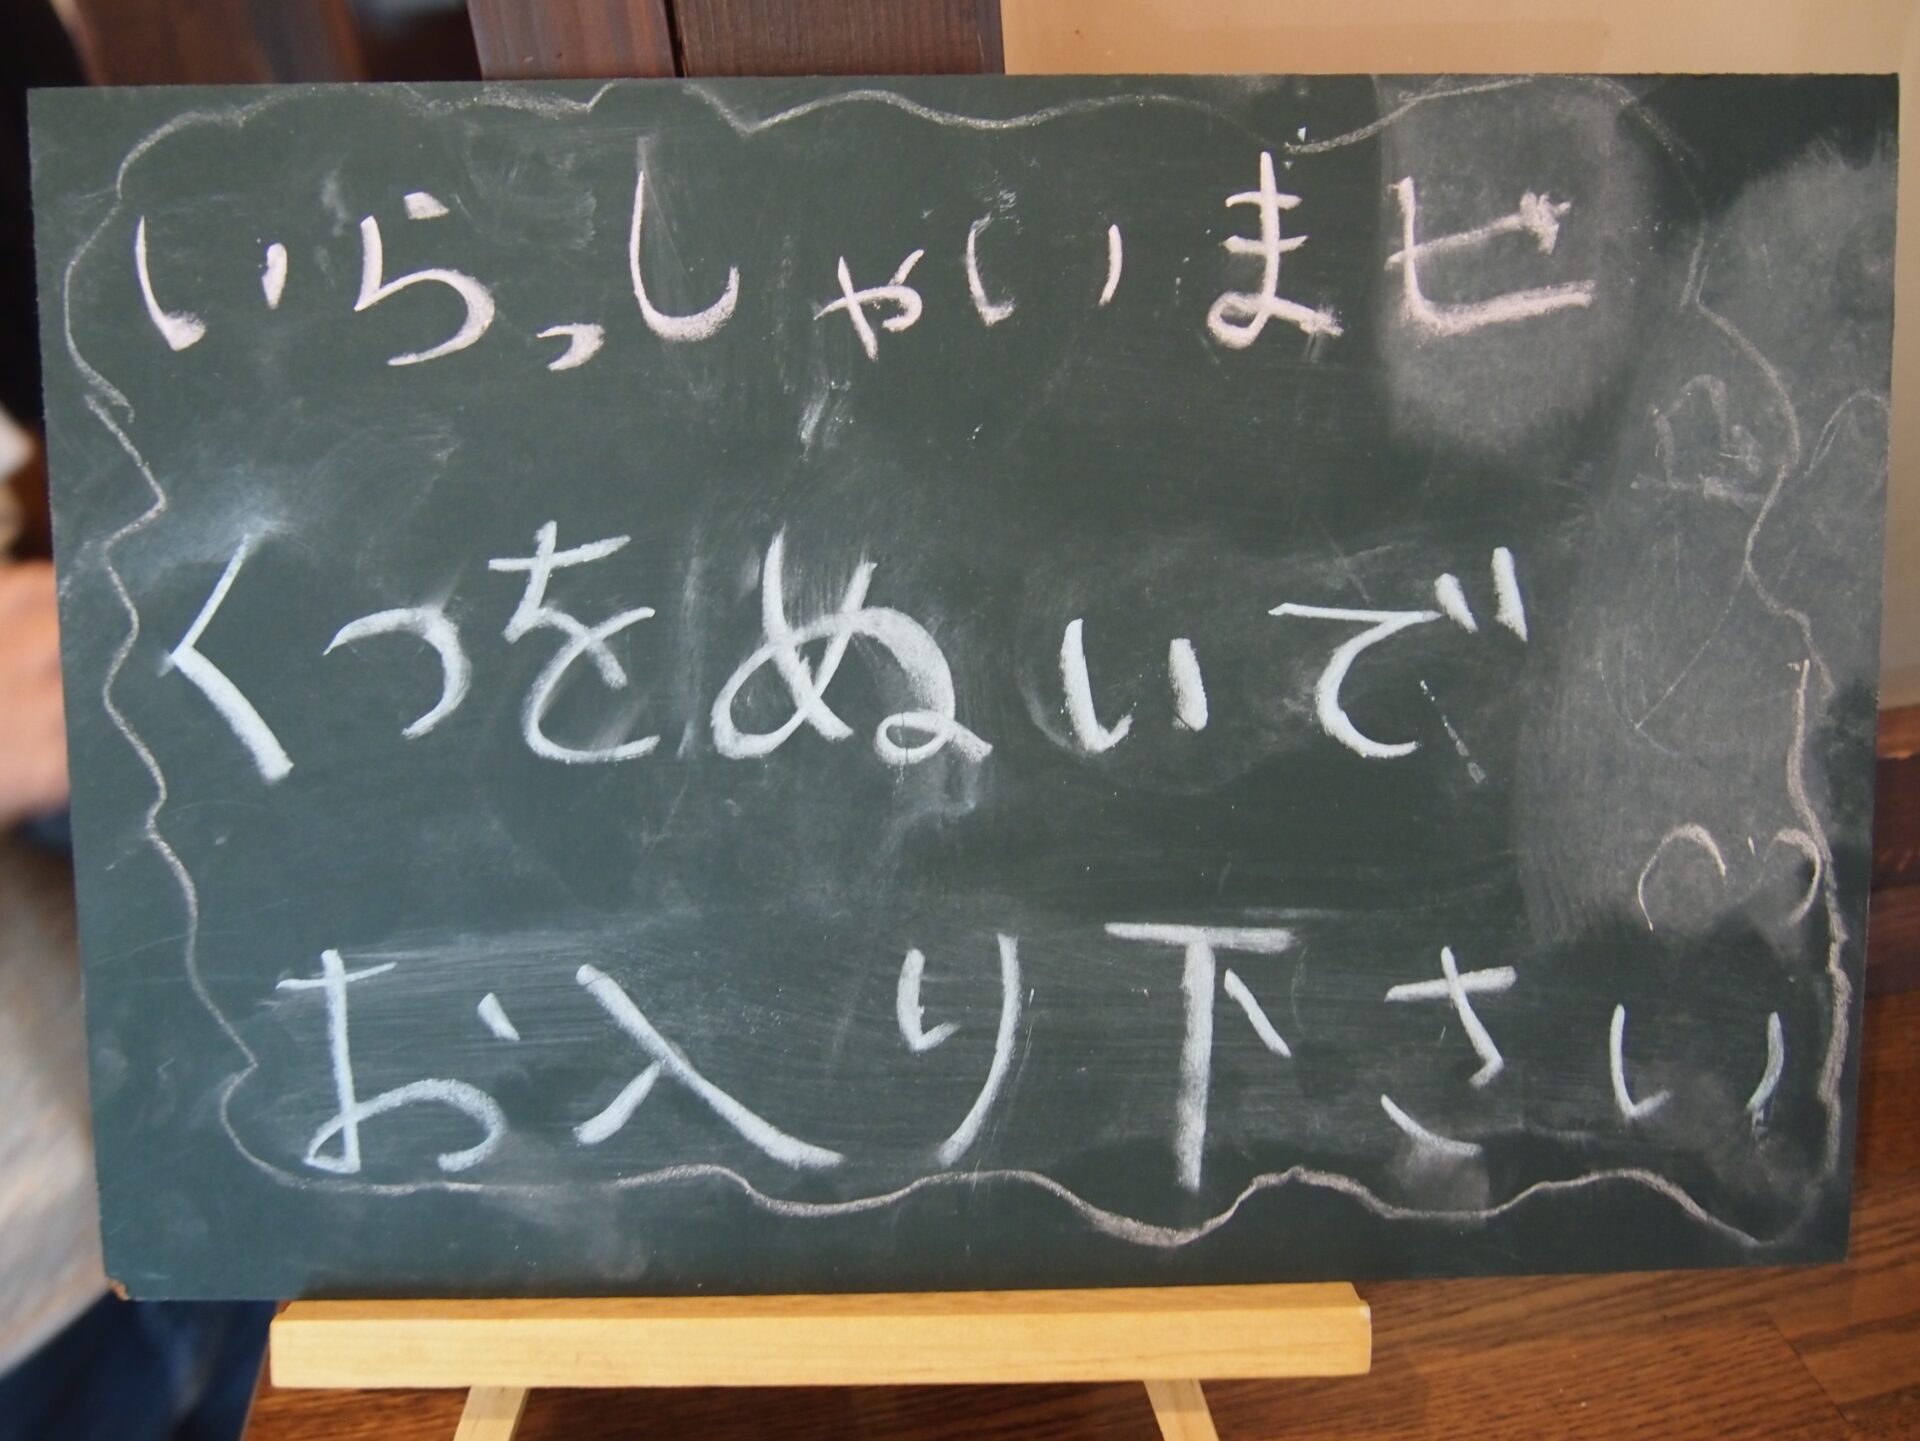 いらっしゃいまセ
くつをぬいで
お入り下さい